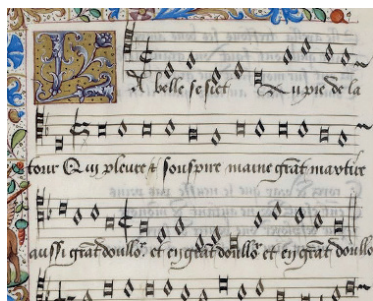 La belle se siet Au pie de la
tour Qui pleure et souspire maine grāt martire
aussi grāt doullor et en grāt doullor et en grāt doullo